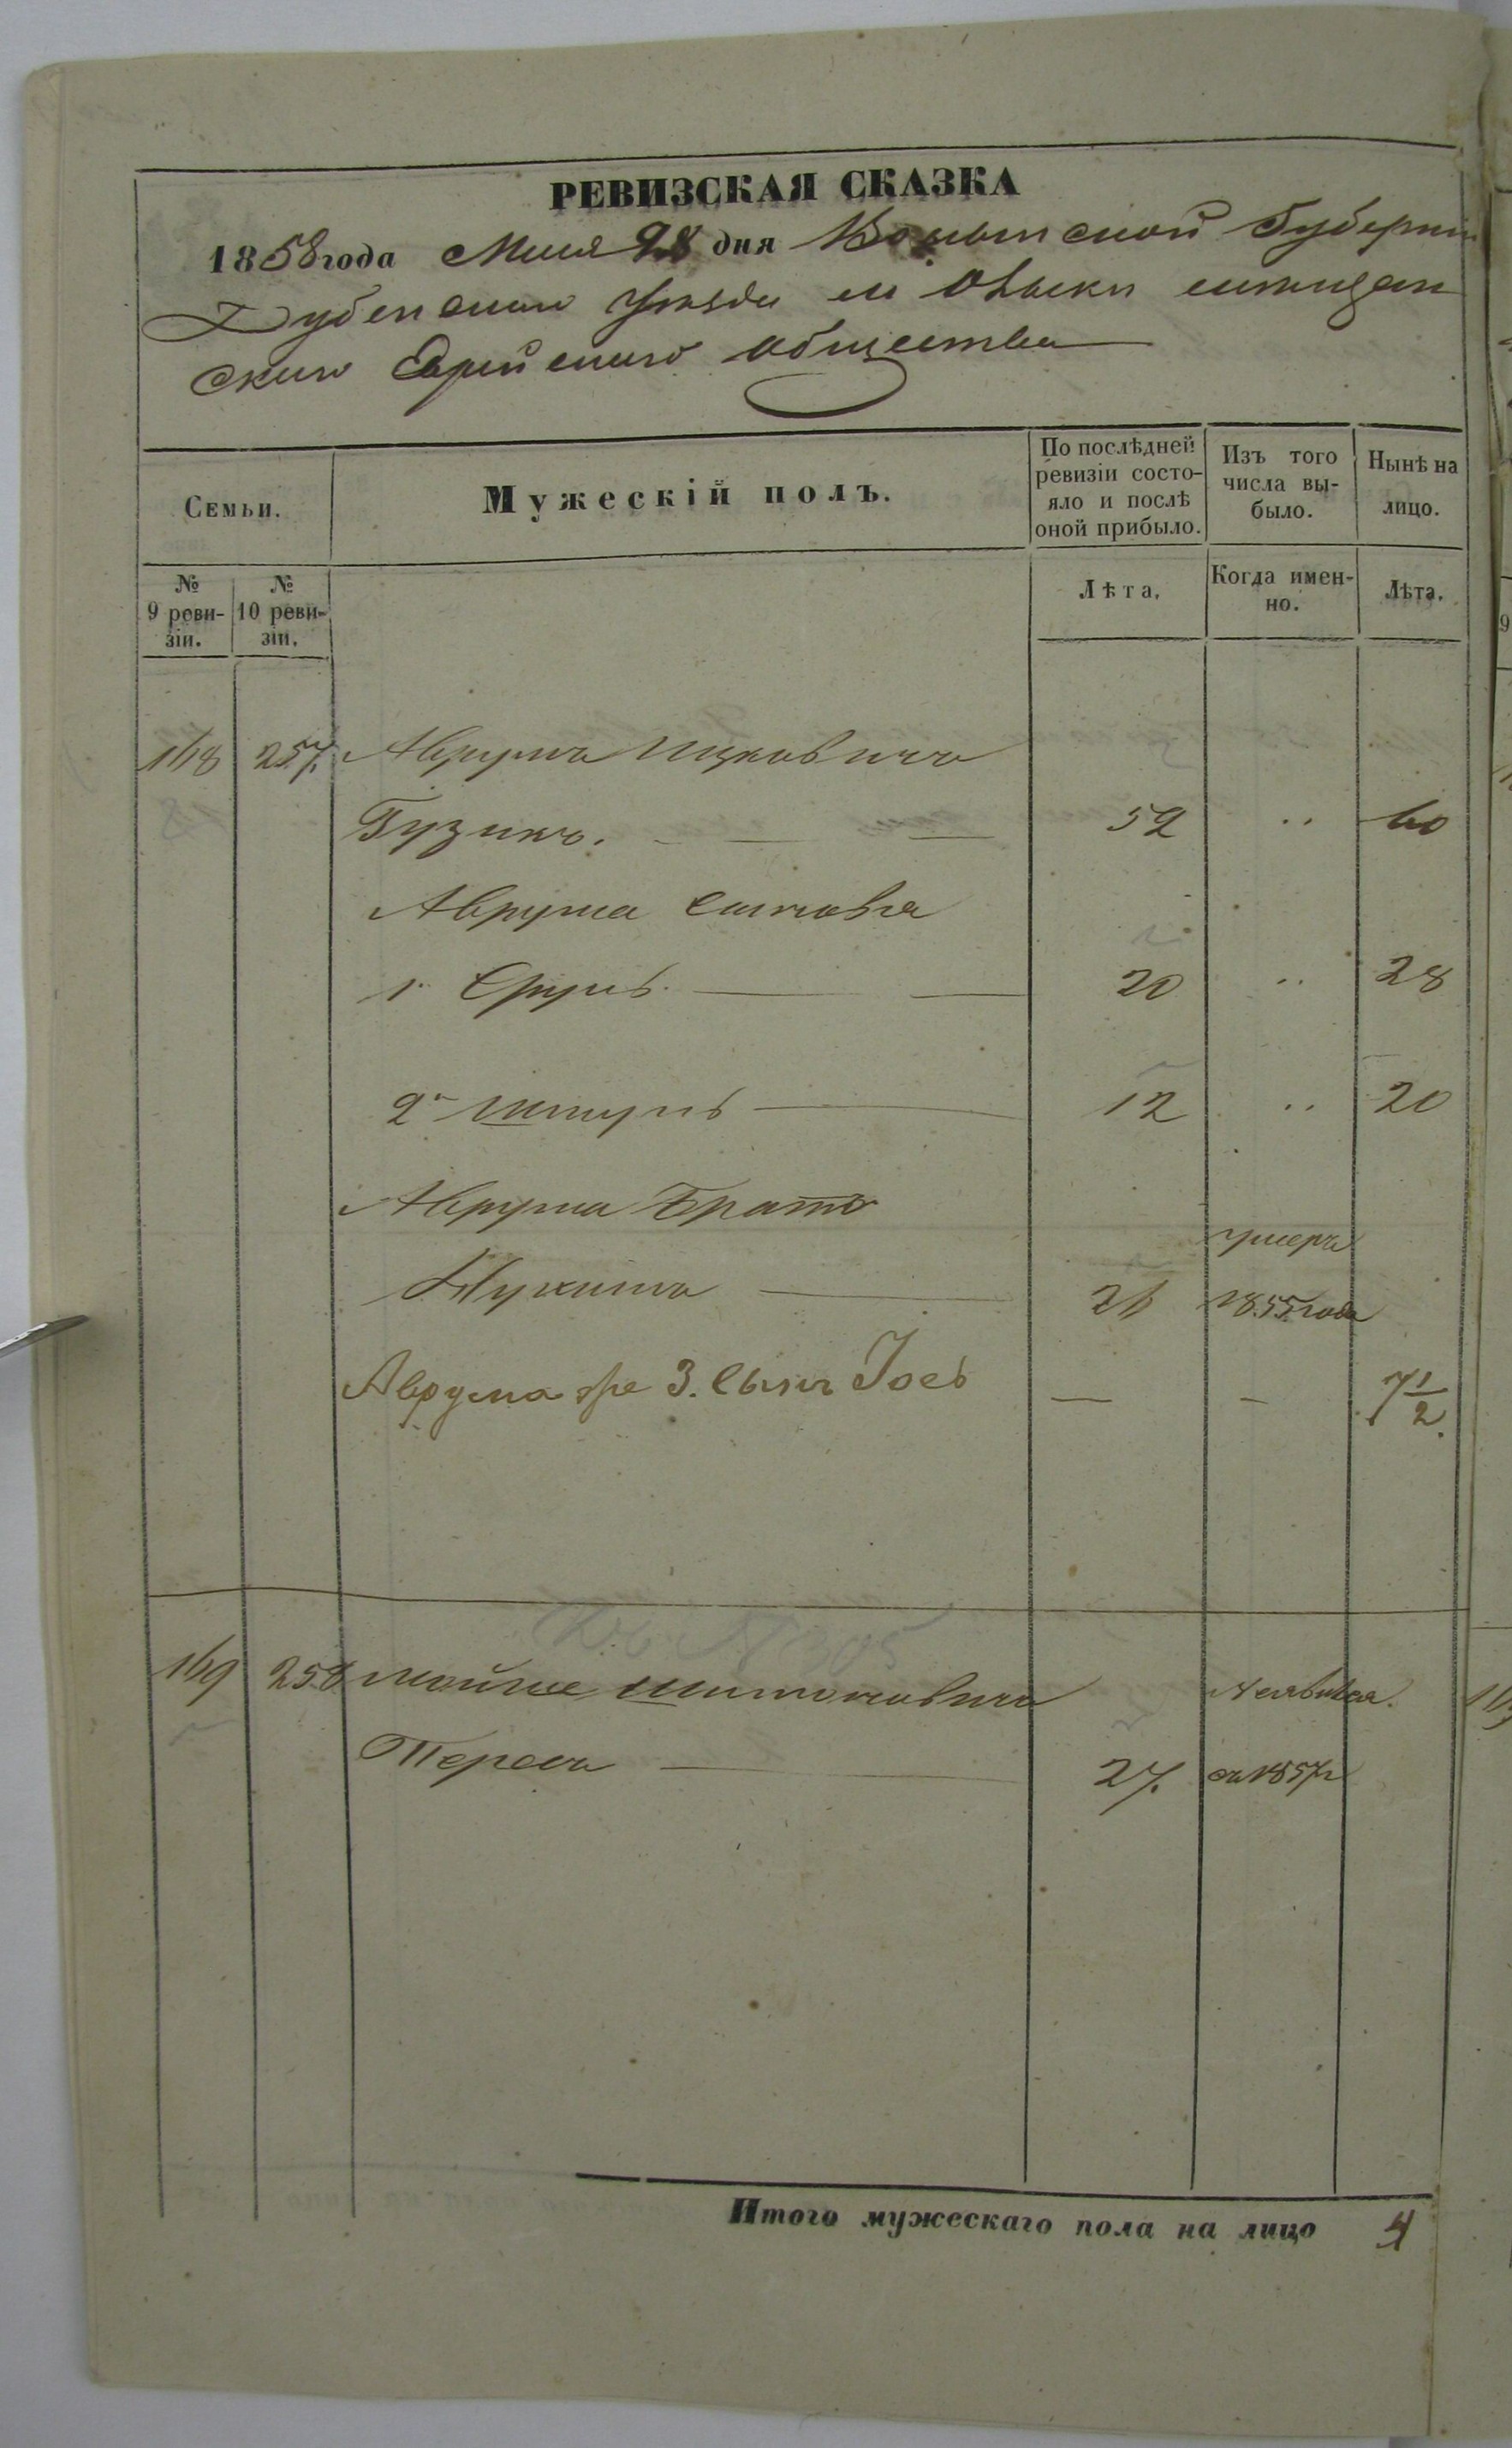 РЕВИЗСКАЯ СКАЗКА
1858 года Мая 28 дня Волынской Губерніи
Дубенскаго Уѣзда м Олыки мѣщан
скаго Еврейскаго общества
Семьи.
Мужескій полъ.
По послѣдней ревизіи состо-
яло и послѣ
оной прибыло.
Изъ того
числа вы-
было.
Нынѣ на
лицо.
№
9 реви-
зіи.
№
10 реви-
зіи.
Лѣта.
Когда имен-
но.
Лѣта.
168 257. Аврумъ Ицковичъ
Гузикъ. 52 .. 60
Аврума сыновья
1. Сруль. 20 .. 28
2. Шмуль 12 .. 20
Аврума Братъ
Нухимъ 26 умеръ
1855 года
Аврума же 3. сынъ Іосъ — — 7 1/2.
Въ № 305
169 258 Мойше Шимоновичъ
Перель 27. Неявился.
съ 1857 г
Итого мужескаго пола на лицо 4